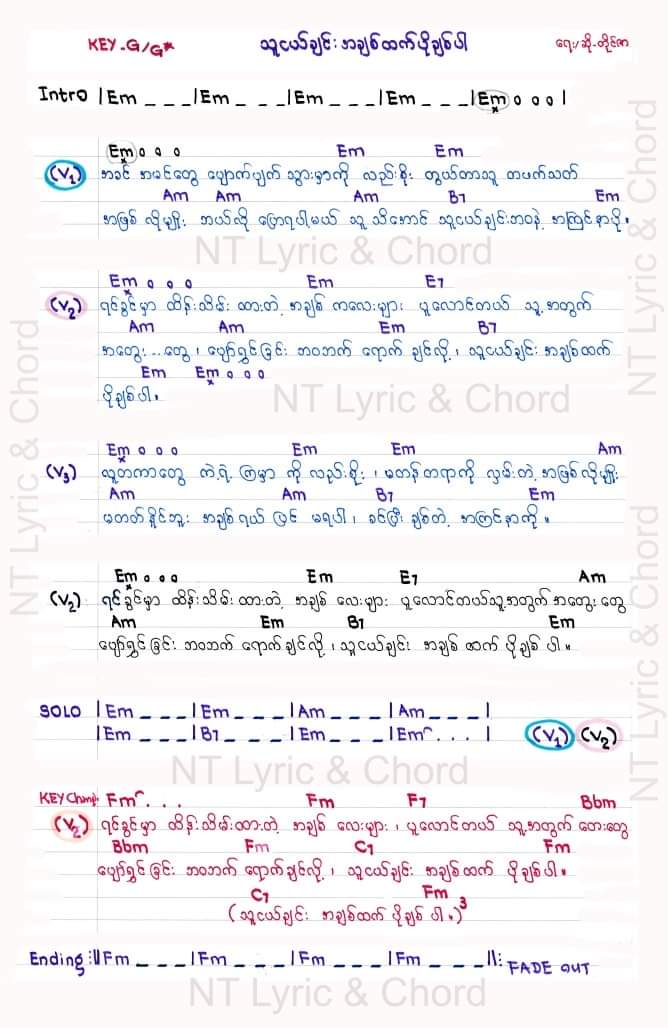 KEY-G/G#
သူငယ်ချင်းအချစ်ထက်ပိုချစ်ပါ
ရေး/ဆို-တိုင်ဇာ
Intro |Em _ _ _|Em _ _ _|Em _ _ _|Em _ _ _|Em o o o|
Em o o o Em Em
(V1) အခင် အမင်တွေ ပျောက်ပျက် သွားမှာကို လည်းစိုး တွယ်တာသူ တဖက်သတ်
Am Am Am B7 Em
အဖြစ် လိုမျိုး ဘယ်လို ပြောရပါ့မယ် သူ သိအောင် သူငယ်ချင်းဘဝနဲ့ အကြင်နာပို။
NT Lyric & Chord
Em o o o Em E7
(V2) ရင်ခွင်မှာ ထိန်းသိမ်း ထားတဲ့ အချစ် ကလေးများ ပူလောင်တယ် သူ့အတွက်
Am Am Em B7
အတွေး...တွေ၊ ပျော်ရွှင်ခြင်း ဘဝဘက် ရောက် ချင်လို့၊ သူငယ်ချင်း အချစ်ထက်
Em Em o o o
ပိုချစ်ပါ။
NT Lyric & Chord
Em o o o Em Em Am
(V3) လူတကာတွေ ကဲ့ရဲ့ ကြမှာ ကို လည်းစိုး၊ မတန်တရာကို လှမ်းတဲ့ အဖြစ်လိုမျိုး
Am Am B7 Em
မတတ်နိုင်ဘူး အချစ်ရယ် ပြင် မရပါ၊ ခင်ပြီး ချစ်တဲ့ အကြင်နာကို။
Em o o o Em E7 Am
(V2) ရင်ခွင်မှာ ထိန်းသိမ်း ထားတဲ့ အချစ် လေးများ ပူလောင်တယ်သူ့အတွက် အတွေးတွေ
Am Em B7 Em
ပျော်ရွှင်ခြင်း ဘဝဘက် ရောက်ချင်လို့၊ သူငယ်ချင်း အချစ် ထက် ပိုချစ် ပါ။
SOLO |Em _ _ _|Em _ _ _|Am _ _ _|Am _ _ _|
|Em _ _ _|B7 _ _ _|Em _ _ _|Em . . .| (V1) (V2)
NT Lyric & Chord
KEY Change Fm . . . Fm F7 Bbm
(V2) ရင်ခွင်မှာ ထိန်းသိမ်းထားတဲ့ အချစ် လေးများ၊ ပူလောင်တယ် သူ့အတွက် တေးတွေ
Bbm Fm C7 Fm
ပျော်ရွှင်ခြင်း ဘဝဘက် ရောက်ချင်လို့၊ သူငယ်ချင်း အချစ်ထက် ပိုချစ်ပါ။
C7 Fm
(သူငယ်ချင်း အချစ်ထက် ပိုချစ် ပါ။)3
Ending :||Fm _ _ _|Fm _ _ _|Fm _ _ _|Fm _ _ _||: FADE OUT
NT Lyric & Chord
NT Lyric & Chord
NT Lyric & Chord
NT Lyric & Chord